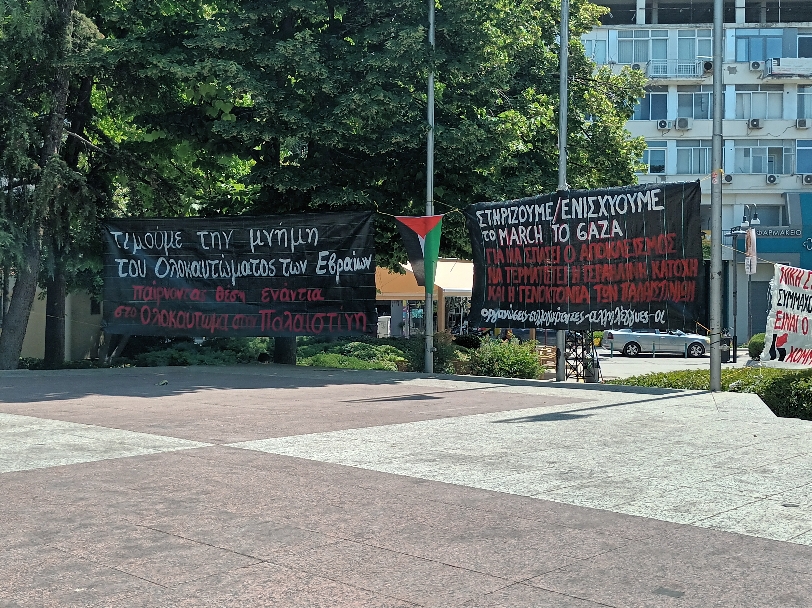 τιμούμε την μνήμη
του Ολοκαυτώματος των Εβραίων
παίρνοντας θέση ενάντια
στο Ολοκαύτωμα στην Παλαιστίνη
ΣΤΗΡΙΖΟΥΜΕ/ΕΝΙΣΧΥΟΥΜΕ
το MARCH TO GAZA
ΓΙΑ ΝΑ ΣΠΑΣΕΙ Ο ΑΠΟΚΛΕΙΣΜΟΣ
ΝΑ ΤΕΡΜΑΤΙΣΤΕΙ Η ΙΣΡΑΗΛΙΝΗ ΚΑΤΟΧΗ
ΚΑΙ Η ΓΕΝΟΚΤΟΝΙΑ ΤΩΝ ΠΑΛΑΙΣΤΙΝΙΩΝ
ΦΑΡΜΑΚΕΙΟ
ΝΙΚΗ Σ
ΣΥΜΜΑΧ
ΕΙΝΑΙ Ο
ΚΟΜΜ